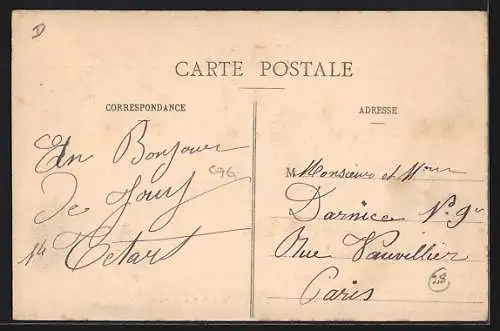 D
CARTE POSTALE
CORRESPONDANCE
ADRESSE
Un Bonjour
de Jouy
Tetart
C76
M Monsieur et Mme
Darnice No 9
Rue Vauvillier
Paris
28